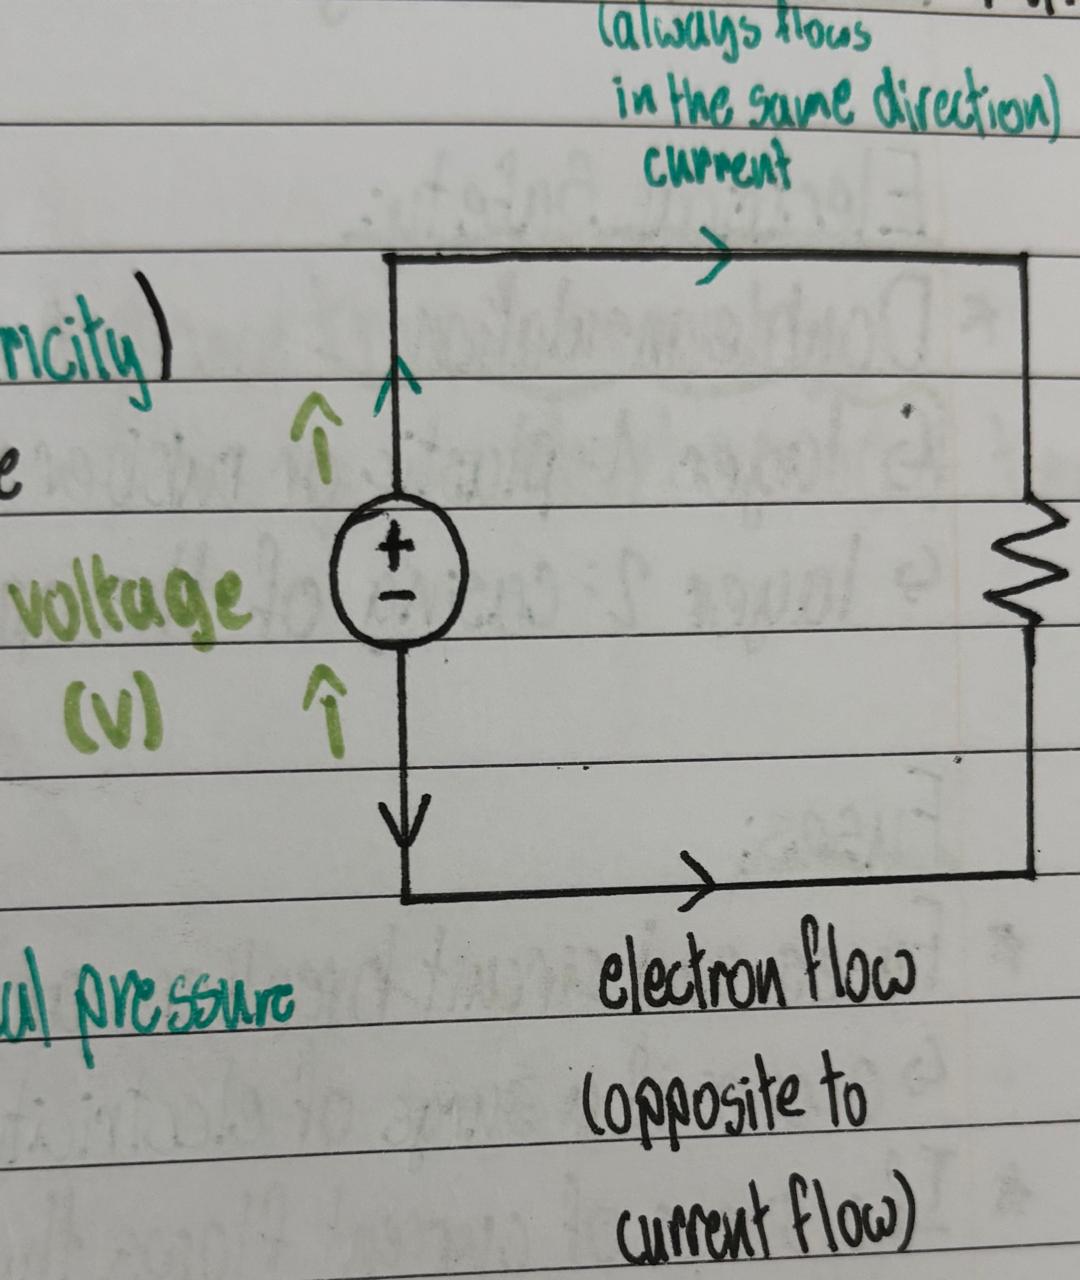 (always flows
in the same direction)
current
ricity)
e
+
voltage
-
(V)
electron flow
ul pressure
(opposite to
current flow)